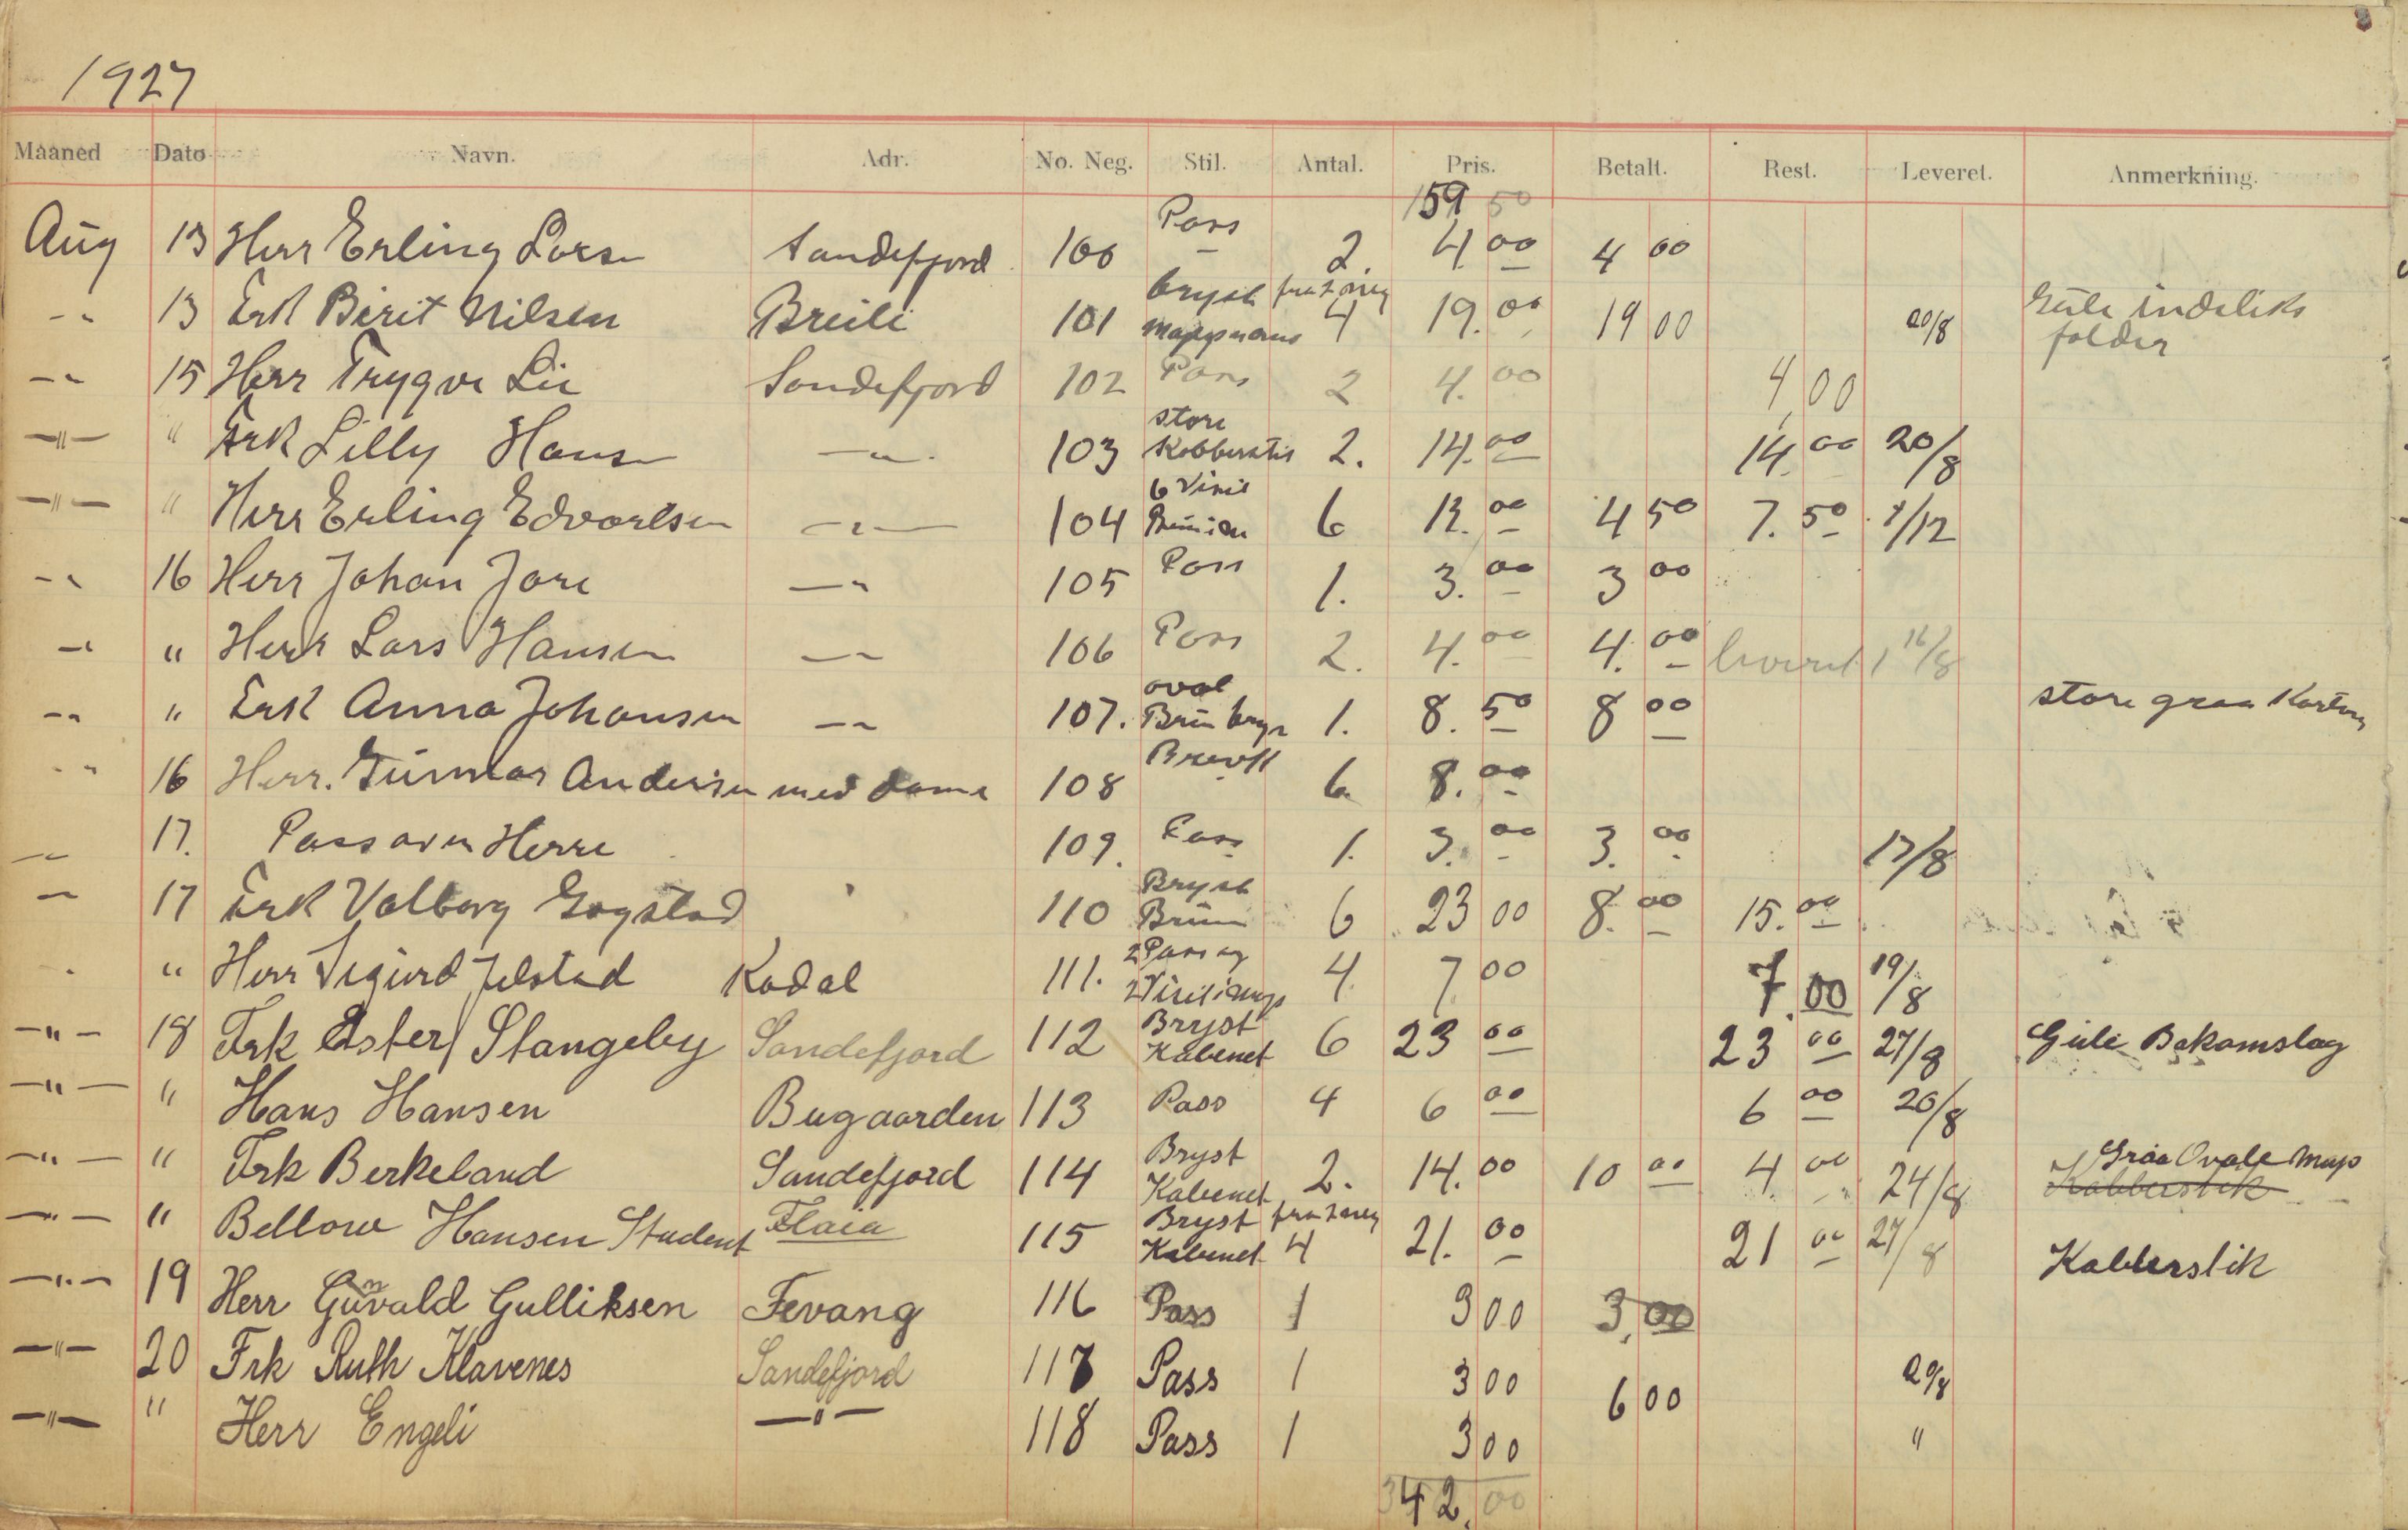 1927
Maaned Dato Navn. Adr. No. Neg. Stil. Antal. Pris. Betalt. Rest. Leveret. Anmerkning.
159 50
Aug 13 Herr Erling Larsen Sandefjord 100 Pass 2. 4.00 4 00
-"- 13 Frk Berit Nilsen Breili 101 bryst fra 2 neg 4 19.00 19 00 20/8 Gule indeliks folder
-"- 15 Herr Trygve Lie Sandefjord 102 Pass 2 4.00 4,00
-"- " Frk Lilly Hansen -"- 103 store Kobberstik 2. 14.00 14.00 20/8
-"- " Herr Erling Edvardsen -"- 104 6 Visit 6 12.00 4 50 7.50 1/12
-"- 16 Herr Johan Jore -"- 105 Pass 1. 3.00 3 00
-"- " Herr Lars Hansen -"- 106 Pass 2. 4.00 4.00 leveret 16/8
-"- " Frk Anna Johansen -"- 107. oval Brun bryst 1. 8.50 8 00 store graa Karton
-"- 16 Herr. Gunnar Andersen med dame 108 Brevk 6 8.00
-"- 17. Pass av en Herre 109. Pass 1. 3.00 3.00 17/8
-"- 17 Frk Valborg Gogstad 110 Bryst Brun 6 23 00 8.00 15.00
-"- " Herr Sigurd Jelstad Kodal 111. 2 Pass og 2 Visit 4 7 00 7.00 19/8
-"- 18 Frk Ester Stangeby Sandefjord 112 Bryst Kabenet 6 23 00 23 00 27/8 Gule Bokomslag
-"- " Hans Hansen Bugaarden 113 Pass 4 6 00 6 00 20/8
-"- " Frk Berkeland Sandefjord 114 Bryst Kabenet 2. 14.00 10 00 4 00 24/8 Graa Ovale Map Kobberstik
-"- " Bellow Hansen Student Flaia 115 Bryst Kabenet fra 2 neg 4 21.00 21 00 27/8 Kobberstik
-"- 19 Herr Gunvald Gulliksen Fevang 116 Pass 1 3 00 3,00
-"- 20 Frk Ruth Klavenes Sandefjord 117 Pass 1 3 00 6 00 20/8
-"- " Herr Engeli -"- 118 Pass 1 3 00 "
342.00